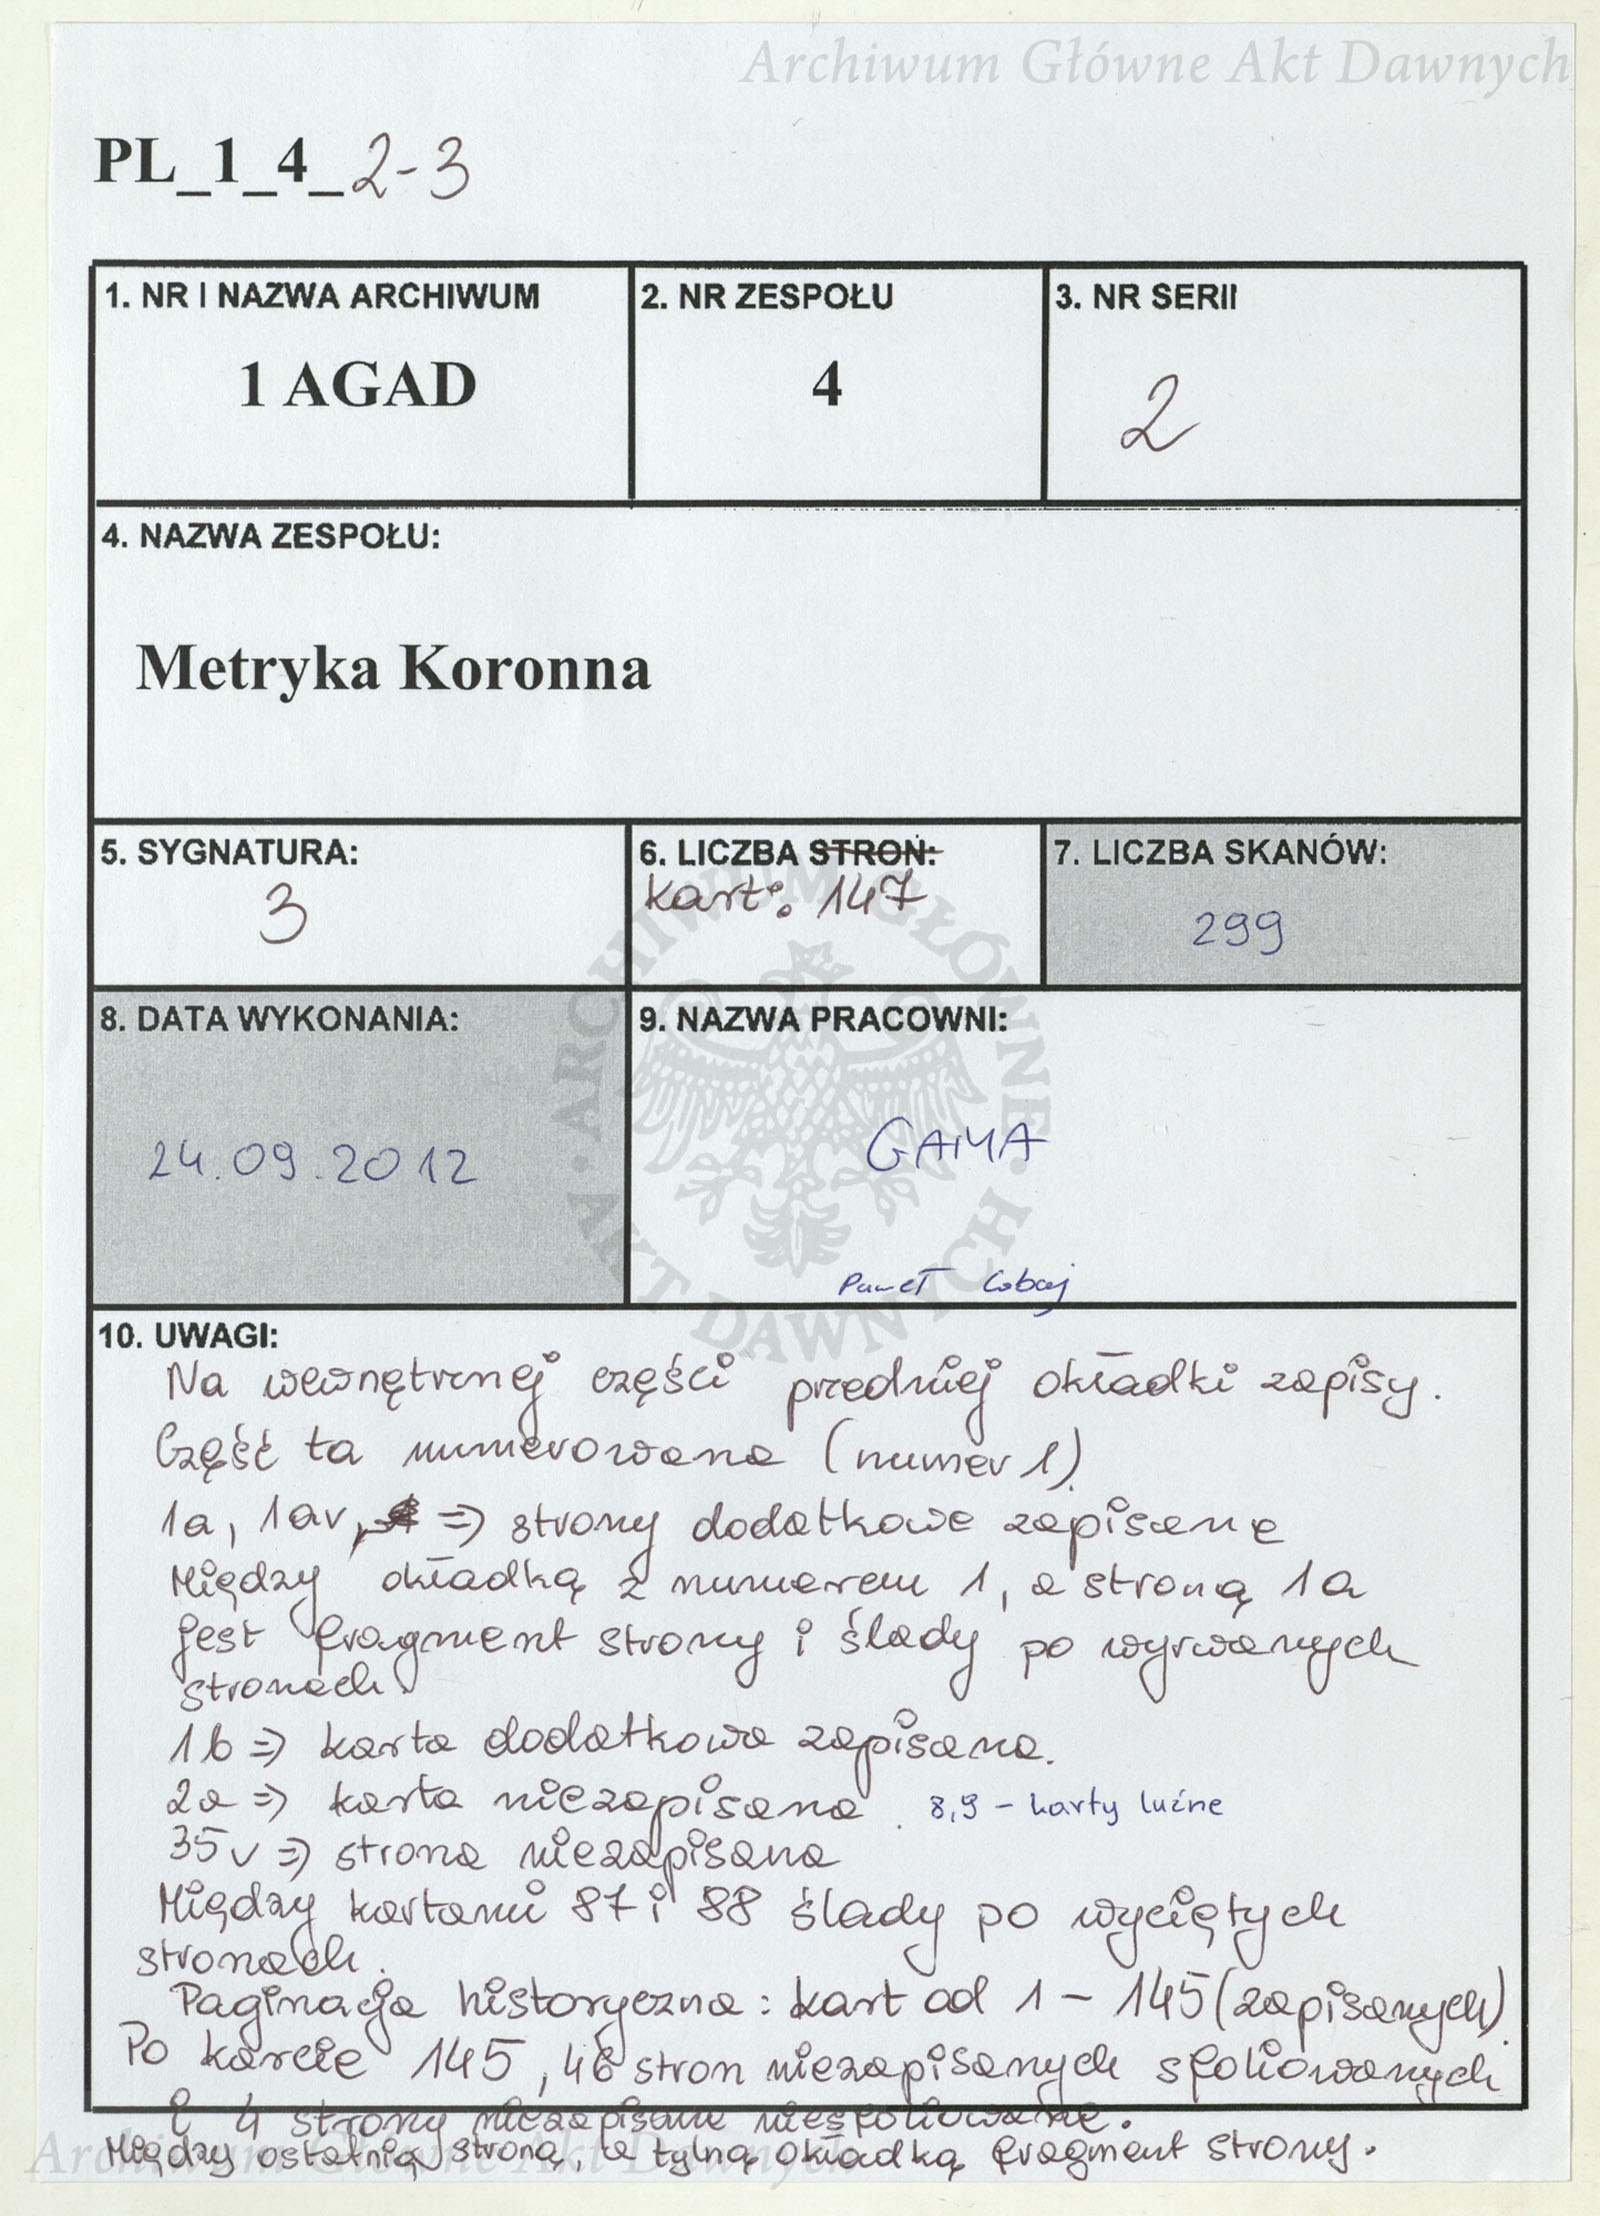 Archiwum Główne Akt Dawnych
PL_1_4_2-3
1. NR I NAZWA ARCHIWUM
1 AGAD
2. NR ZESPOŁU
4
3. NR SERII
2
4. NAZWA ZESPOŁU:
Metryka Koronna
5. SYGNATURA:
3
6. LICZBA STRON:
kart: 147
7. LICZBA SKANÓW:
299
8. DATA WYKONANIA:
24.09.2012
9. NAZWA PRACOWNI:
GAMA
Paweł
ARCHIWUM GŁÓWNE AKT DAWNYCH
10. UWAGI:
Na wewnętrznej części przedniej okładki zapisy.
Część ta numerowana (numer 1).
1a, 1av, => strony dodatkowe zapisane
Między okładką z numerem 1, a stroną 1a
jest fragment strony i ślady po wyrwanych
stronach.
1b => karta dodatkowa zapisana.
2a => karta niezapisana. 8,9 - karty luźne
35v => strona niezapisana
Między kartami 87 i 88 ślady po wyciętych
stronach.
Paginacja historyczna: kart od 1 - 145 (zapisanych)
Po karcie 145, 46 stron niezapisanych sfoliowanych
i 4 strony niezapisane niesfoliowane.
Między ostatnią stroną, a tylną okładką fragment strony.
Archiwum Główne Akt Dawnych